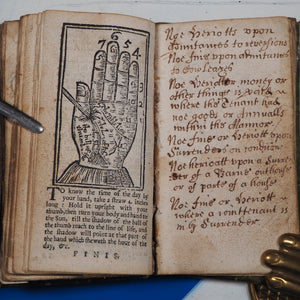 7 6 5 4
To know the time of the day by
your hand, take a straw 4. inches
long: Hold it upright with your
thumb, then turn your body and hand to
the Sun, till the shadow of the ball of
the thumb reach to the line of life, and
the shadow will point at that part of
the hand which shews the hour of the
day, &c.
FINIS.
Noe Heriotts upon
admitances to reversions
Noe fine upon admitances
to
Noe Heriotts money or
other things is paid
where the Tenant had
noe goods or Annualls
within the Mannor
Noe fine or Heriott upon
Surrenders on condition
Noe heriott upon a Surren
der of a Barne outhouse
or of parts of a house
Noe fine or Heriott
where a remittenant
in by Surrender